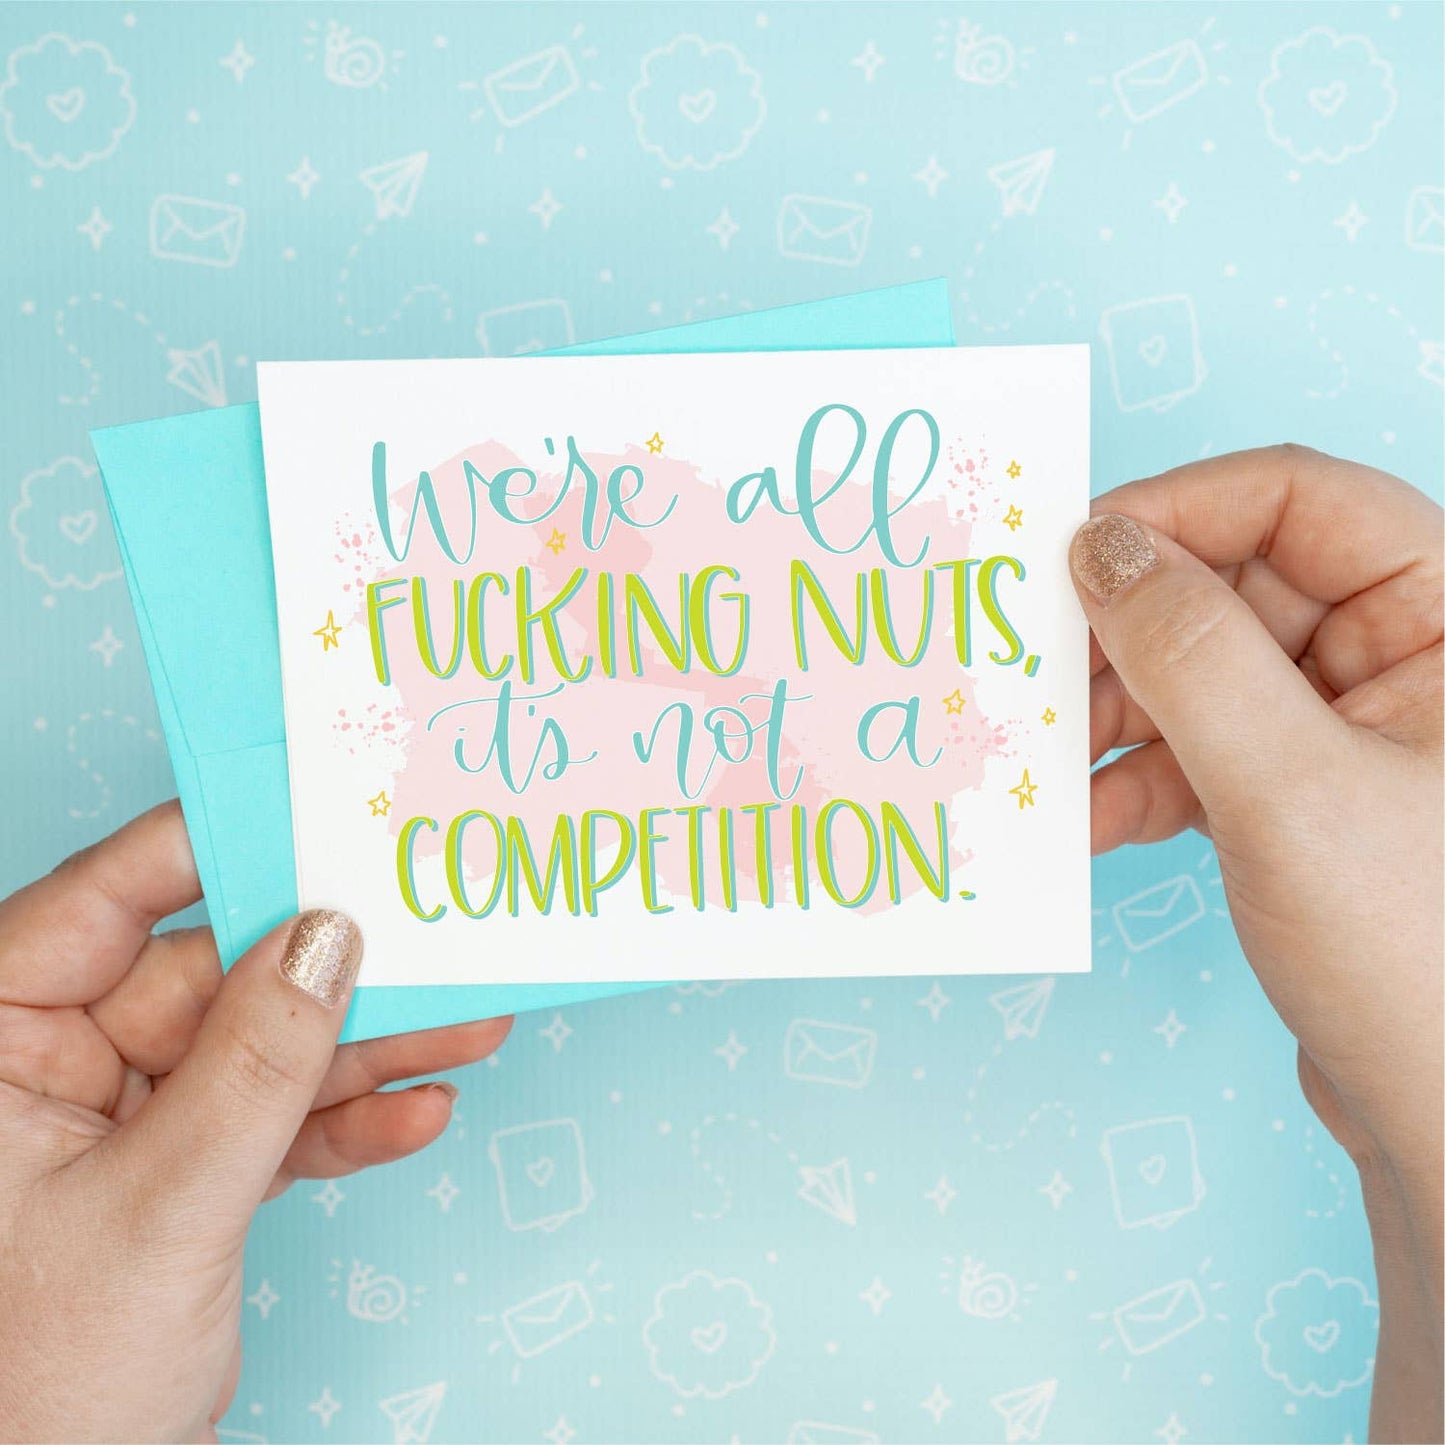 We're all
FUCKING NUTS,
it's not a
COMPETITION.